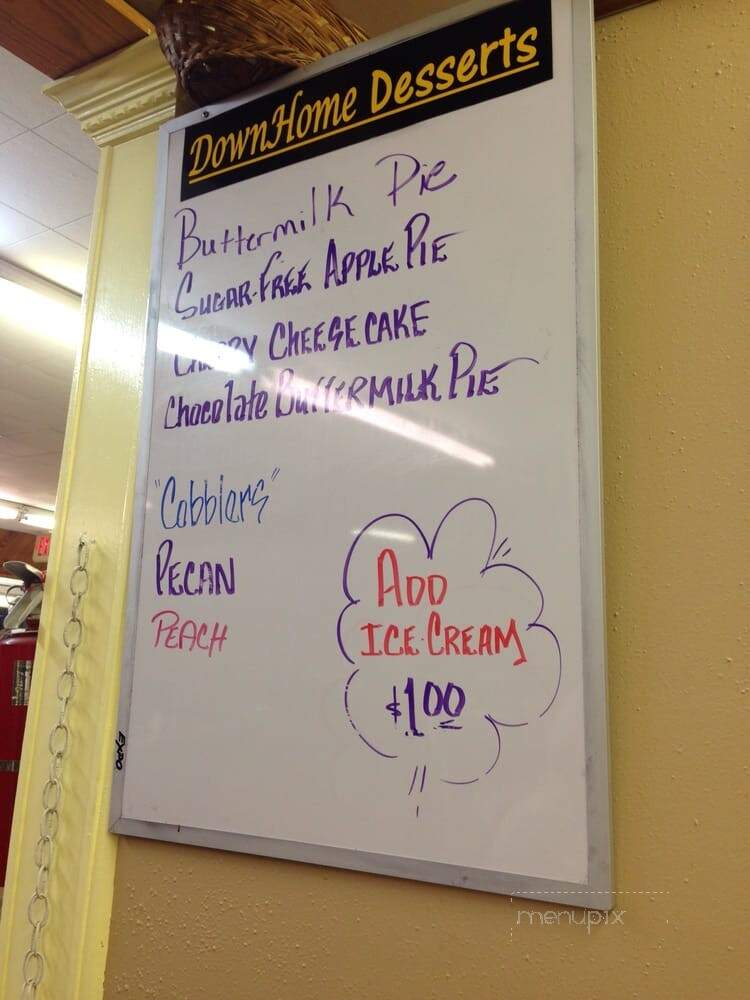 DownHome Desserts
Buttermilk Pie
Sugar-Free Apple Pie
Cheesecake
Chocolate Buttermilk Pie
"Cobblers"
Pecan
Peach
Add
Ice-Cream
$1.00
EXPO
menupix